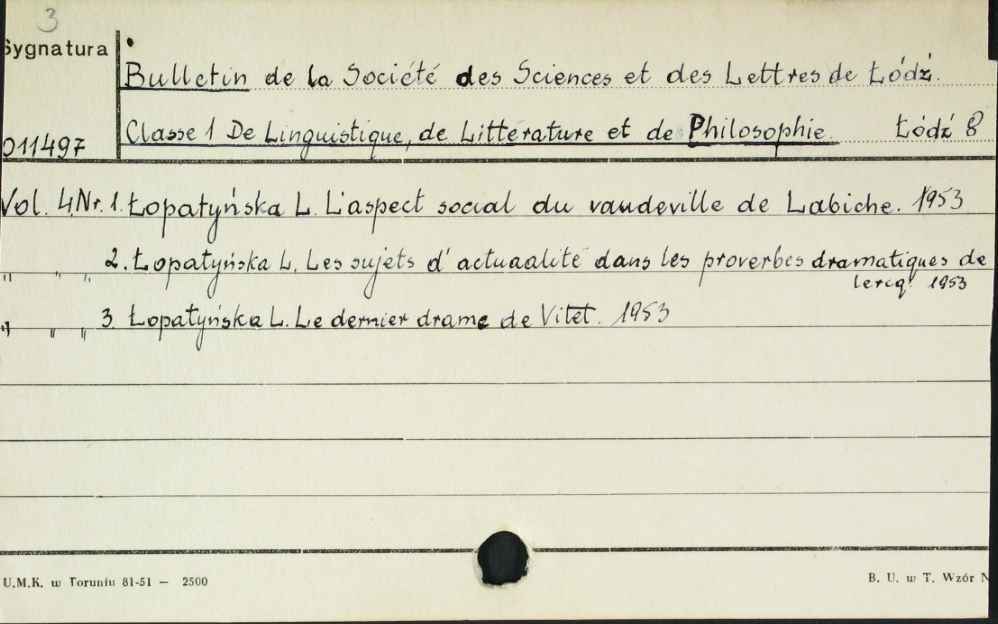 3
Sygnatura
Bulletin de la Société des Sciences et des Lettres de Łódź.
011497
Classe 1 De Linguistique, de Litterature et de Philosophie. Łódź 8
Vol. 4, Nr. 1. Łopatyńska L. L'aspect social du vaudeville de Labiche. 1953
" " " 2. Łopatyńska L. Les sujets d'actuaalité dans les proverbes dramatiques de
lercq. 1953
" " " 3. Łopatyńska L. Le dernier drame de Vitet. 1953
U.M.K. w Toruniu 81-51 — 2500
B. U. w T. Wzór N